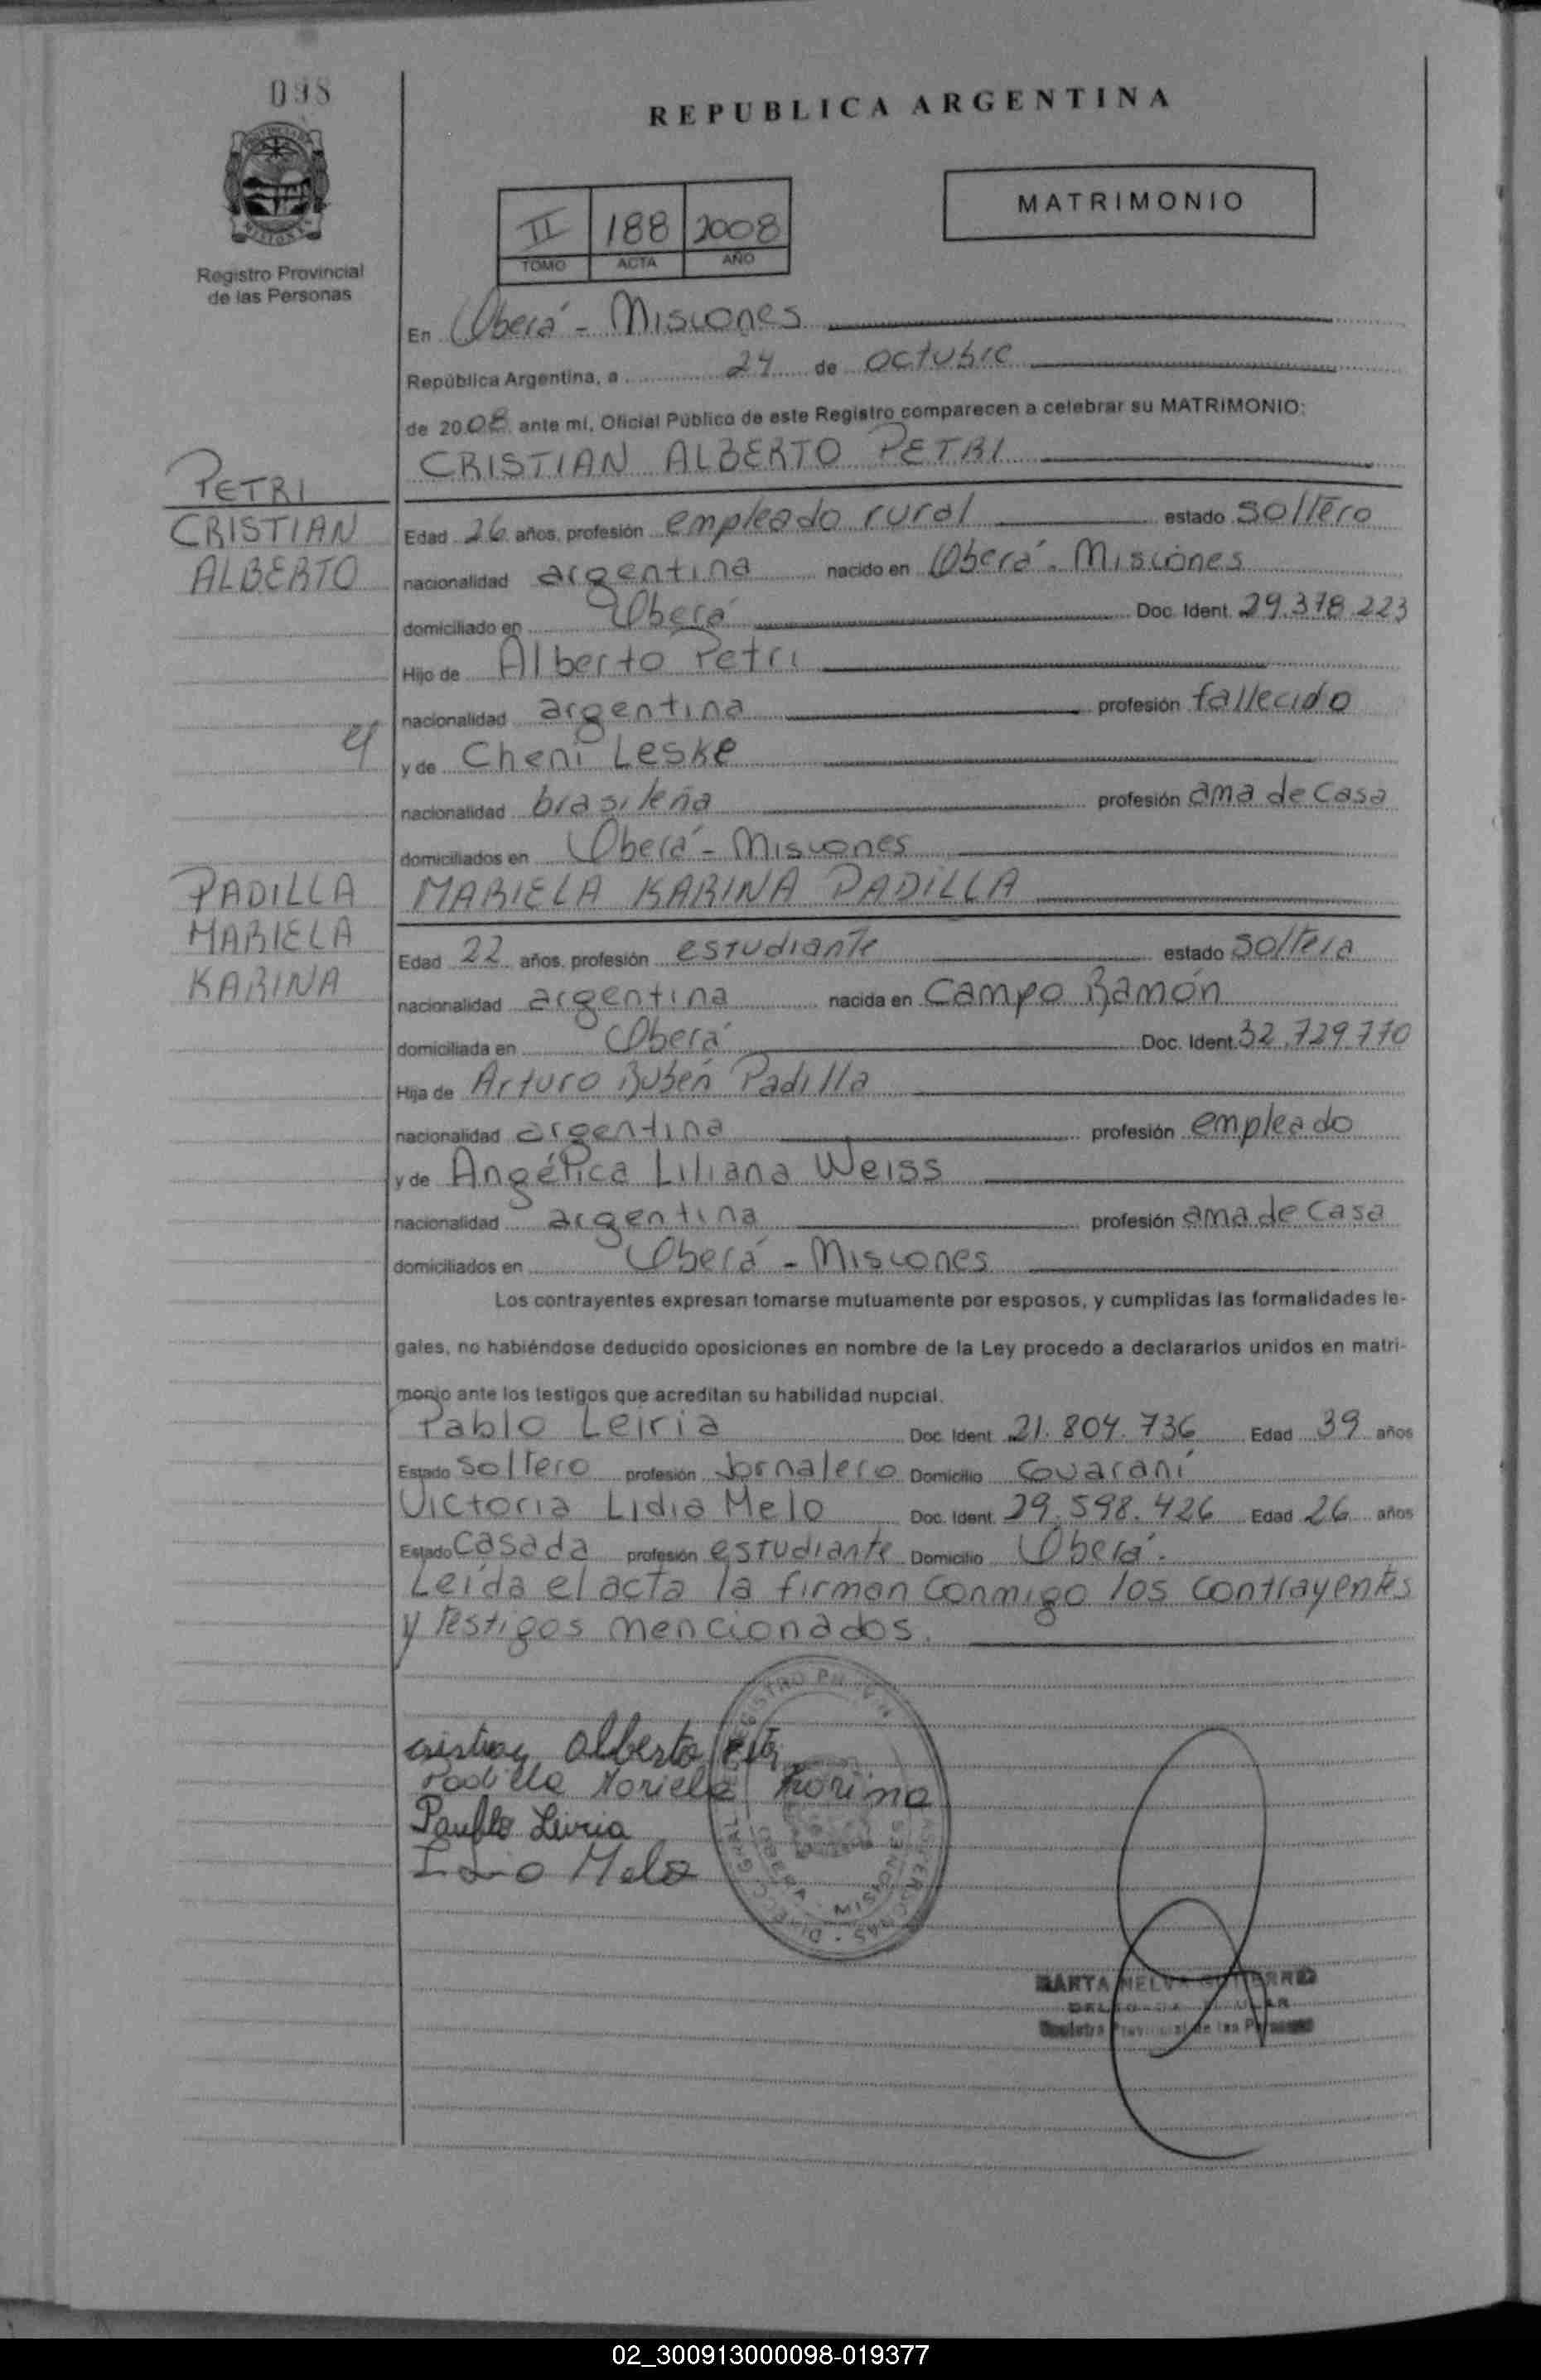 098
REPUBLICA ARGENTINA
MATRIMONIO
II 188 2008
TOMO ACTA AÑO
Registro Provincial
de las Personas
En Oberá - Misiones
República Argentina, a 24 de octubre
de 2008 ante mí, Oficial Público de este Registro comparecen a celebrar su MATRIMONIO:
CRISTIAN ALBERTO PETRI
PETRI
CRISTIAN
ALBERTO
Edad 26 años, profesión empleado rural estado soltero
nacionalidad argentina nacido en Oberá - Misiones
domiciliado en Oberá Doc. Ident. 29.378.223
Hijo de Alberto Petri
nacionalidad argentina profesión fallecido
y
y de Cheni Leske
nacionalidad brasileña profesión ama de casa
domiciliados en Oberá - Misiones
PADILLA
MARIELA
KARINA
MARIELA KARINA PADILLA
Edad 22 años, profesión estudiante estado soltera
nacionalidad argentina nacida en Campo Ramón
domiciliada en Oberá Doc. Ident. 32.729.770
Hija de Arturo Rubén Padilla
nacionalidad argentina profesión empleado
y de Angélica Liliana Weiss
nacionalidad argentina profesión ama de casa
domiciliados en Oberá - Misiones
Los contrayentes expresan tomarse mutuamente por esposos, y cumplidas las formalidades le-
gales, no habiéndose deducido oposiciones en nombre de la Ley procedo a declararlos unidos en matri-
monio ante los testigos que acreditan su habilidad nupcial.
Pablo Leiria Doc. Ident. 21.804.736 Edad 39 años
Estado soltero profesión Jornalero Domicilio Guaraní
Victoria Lidia Melo Doc. Ident. 29.598.426 Edad 26 años
Estado casada profesión estudiante Domicilio Oberá.
Leída el acta la firman conmigo los contrayentes
y testigos mencionados.
cristian alberto Petri
Padilla Mariela Karina
Paublo Leiria
Melo
OBERA - MISIONES
Registro Provincial de las Personas
02_300913000098-019377